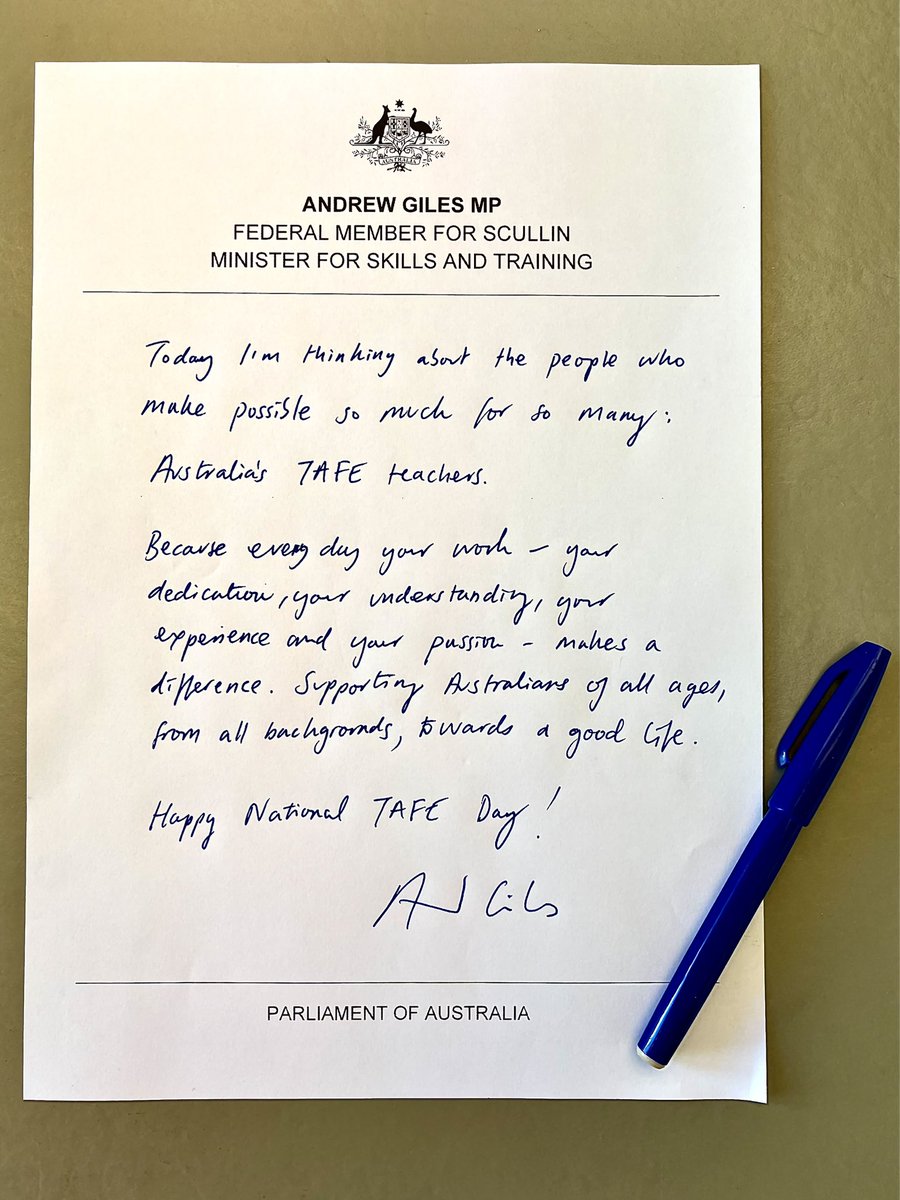 AUSTRALIA
ANDREW GILES MP
FEDERAL MEMBER FOR SCULLIN
MINISTER FOR SKILLS AND TRAINING
Today I'm thinking about the people who
make possible so much for so many:
Australia's TAFE teachers.
Because every day your work – your
dedication, your understanding, your
experience and your passion – makes a
difference. Supporting Australians of all ages,
from all backgrounds, towards a good life.
Happy National TAFE Day!
And Giles
PARLIAMENT OF AUSTRALIA